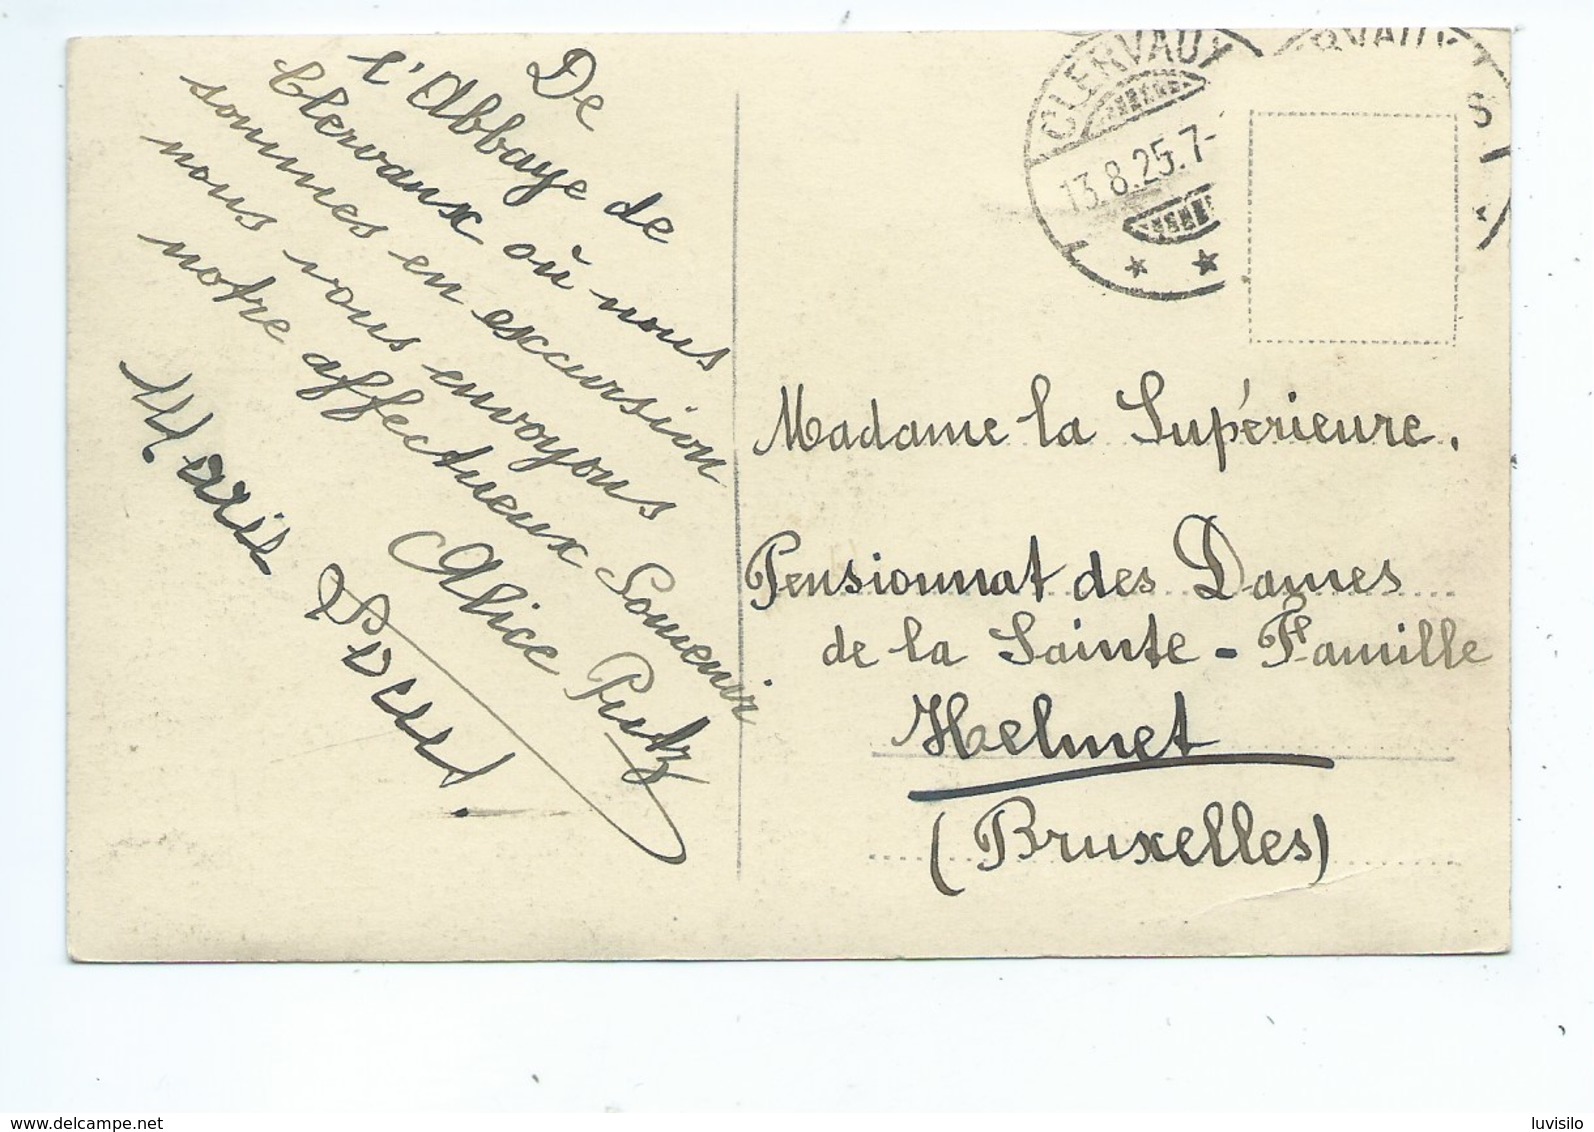 De
l'Abbaye de
Clervaux où nous
sommes en excursion
nous vous envoyons
notre affectueux Souvenir
Alice Putz
Marie
CLERVAUX
13.8.25.7-
RVAUX
Madame la Supérieure.
Pensionnat des Dames
de la Sainte-Famille
Helmet
(Bruxelles)
www.delcampe.net
luvisilo